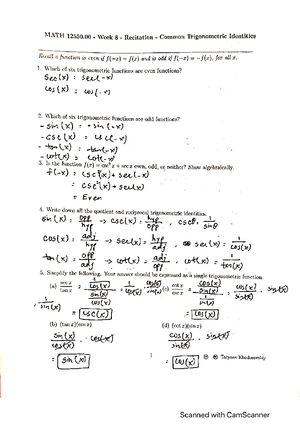 MATH 12550.00 - Week 8 - Recitation - Common Trigonometric Identities
Recall a function is even if f(-x) = f(x) and is odd if f(-x) = -f(x), for all x.
1. Which of six trigonometric functions are even functions?
sec(x) = sec(-x)
cos(x) = cos(-x)
2. Which of six trigonometric functions are odd functions?
- sin(x) = sin(-x)
- csc(x) = csc(-x)
- tan(x) = tan(-x)
- cot(x) = cot(-x)
3. Is the function f(x) = csc² x + sec x even, odd, or neither? Show algebraically.
f(-x) = csc²(-x) + sec(-x)
= csc²(x) + sec(x)
= Even
4. Write down all the quotient and reciprocal trigonometric identities.
sin(x) = opp/hyp → csc(x) = hyp/opp, cscθ = 1/sinθ
cos(x) = adj/hyp → sec(x) = hyp/adj, sec(x) = 1/cos(x)
tan(x) = opp/adj → cot(x) = adj/opp, cot(x) = 1/tan(x)
5. Simplify the following. Your answer should be expressed as a single trigonometric function.
(a) sec x/tan x
(c) cot x/csc x
1/sin(x)
csc(x)
cos(x)
(b) (tan x)(cos x)
(d) (cot x)(sin x)
sin(x)/cos(x) · cos(x)
cos(x)/sin(x) · sin(x)
= sin(x)
= cos(x)
1
Scanned with CamScanner